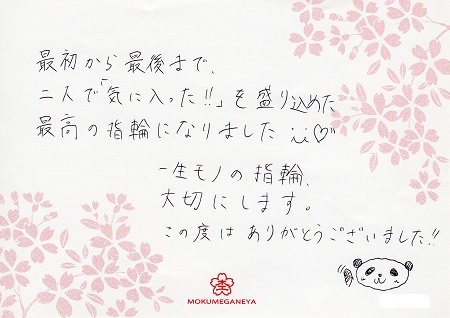 最初から最後まで、
二人で「気に入った!!」を盛り込めた
最高の指輪になりました
一生モノの指輪、
大切にします。
この度はありがとうございました!!
MOKUMEGANEYA